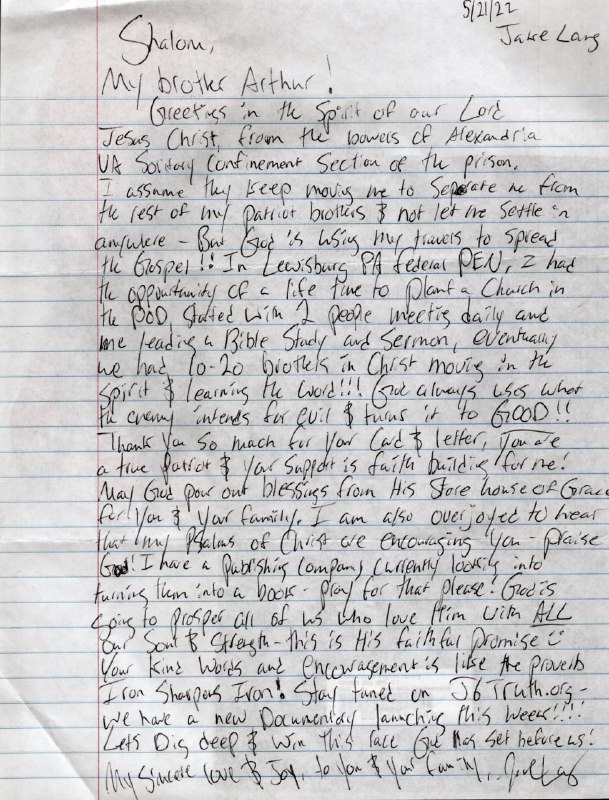 5/21/22
Jake Lang
Shalom,
My brother Arthur!
Greetings in the Spirit of our Lord
Jesus Christ, from the bowels of Alexandria
VA Solitary Confinement Section of the prison.
I assume they keep moving me to Seperate me from
the rest of my patriot brothers & not let me settle in
anywhere - But God is using my travels to spread
the Gospel!! In Lewisburg PA federal PEN, I had
the oppurtunity of a life time to plant a Church in
the POD, started with 2 people meeting daily and
me leading a Bible Study and Sermon, eventually
we had 10-20 brothers in Christ moving in the
spirit & learning the word!!! God always uses what
the enemy intends for evil & turns it to GOOD!!
Thank you so much for your Card & letter, you are
a true patriot & your support is faith building for me!
May God pour out blessings from His Store house of Grace
for you & your family. I am also overjoyed to hear
that my Psalms of Christ are encouraging you - praise
God! I have a publishing company currently looking into
turning them into a book - pray for that please! God is
going to prosper all of us who love Him with ALL
our Soul & Strength - this is His faithful promise
Your kind words and encouragement is like the proverb
Iron Sharpens Iron! Stay tuned on J6Truth.org -
we have a new Documentary launching this week!!!!
Lets Dig deep & Win this race God has set before us!
My Sincere love & Joy, to you & your family,